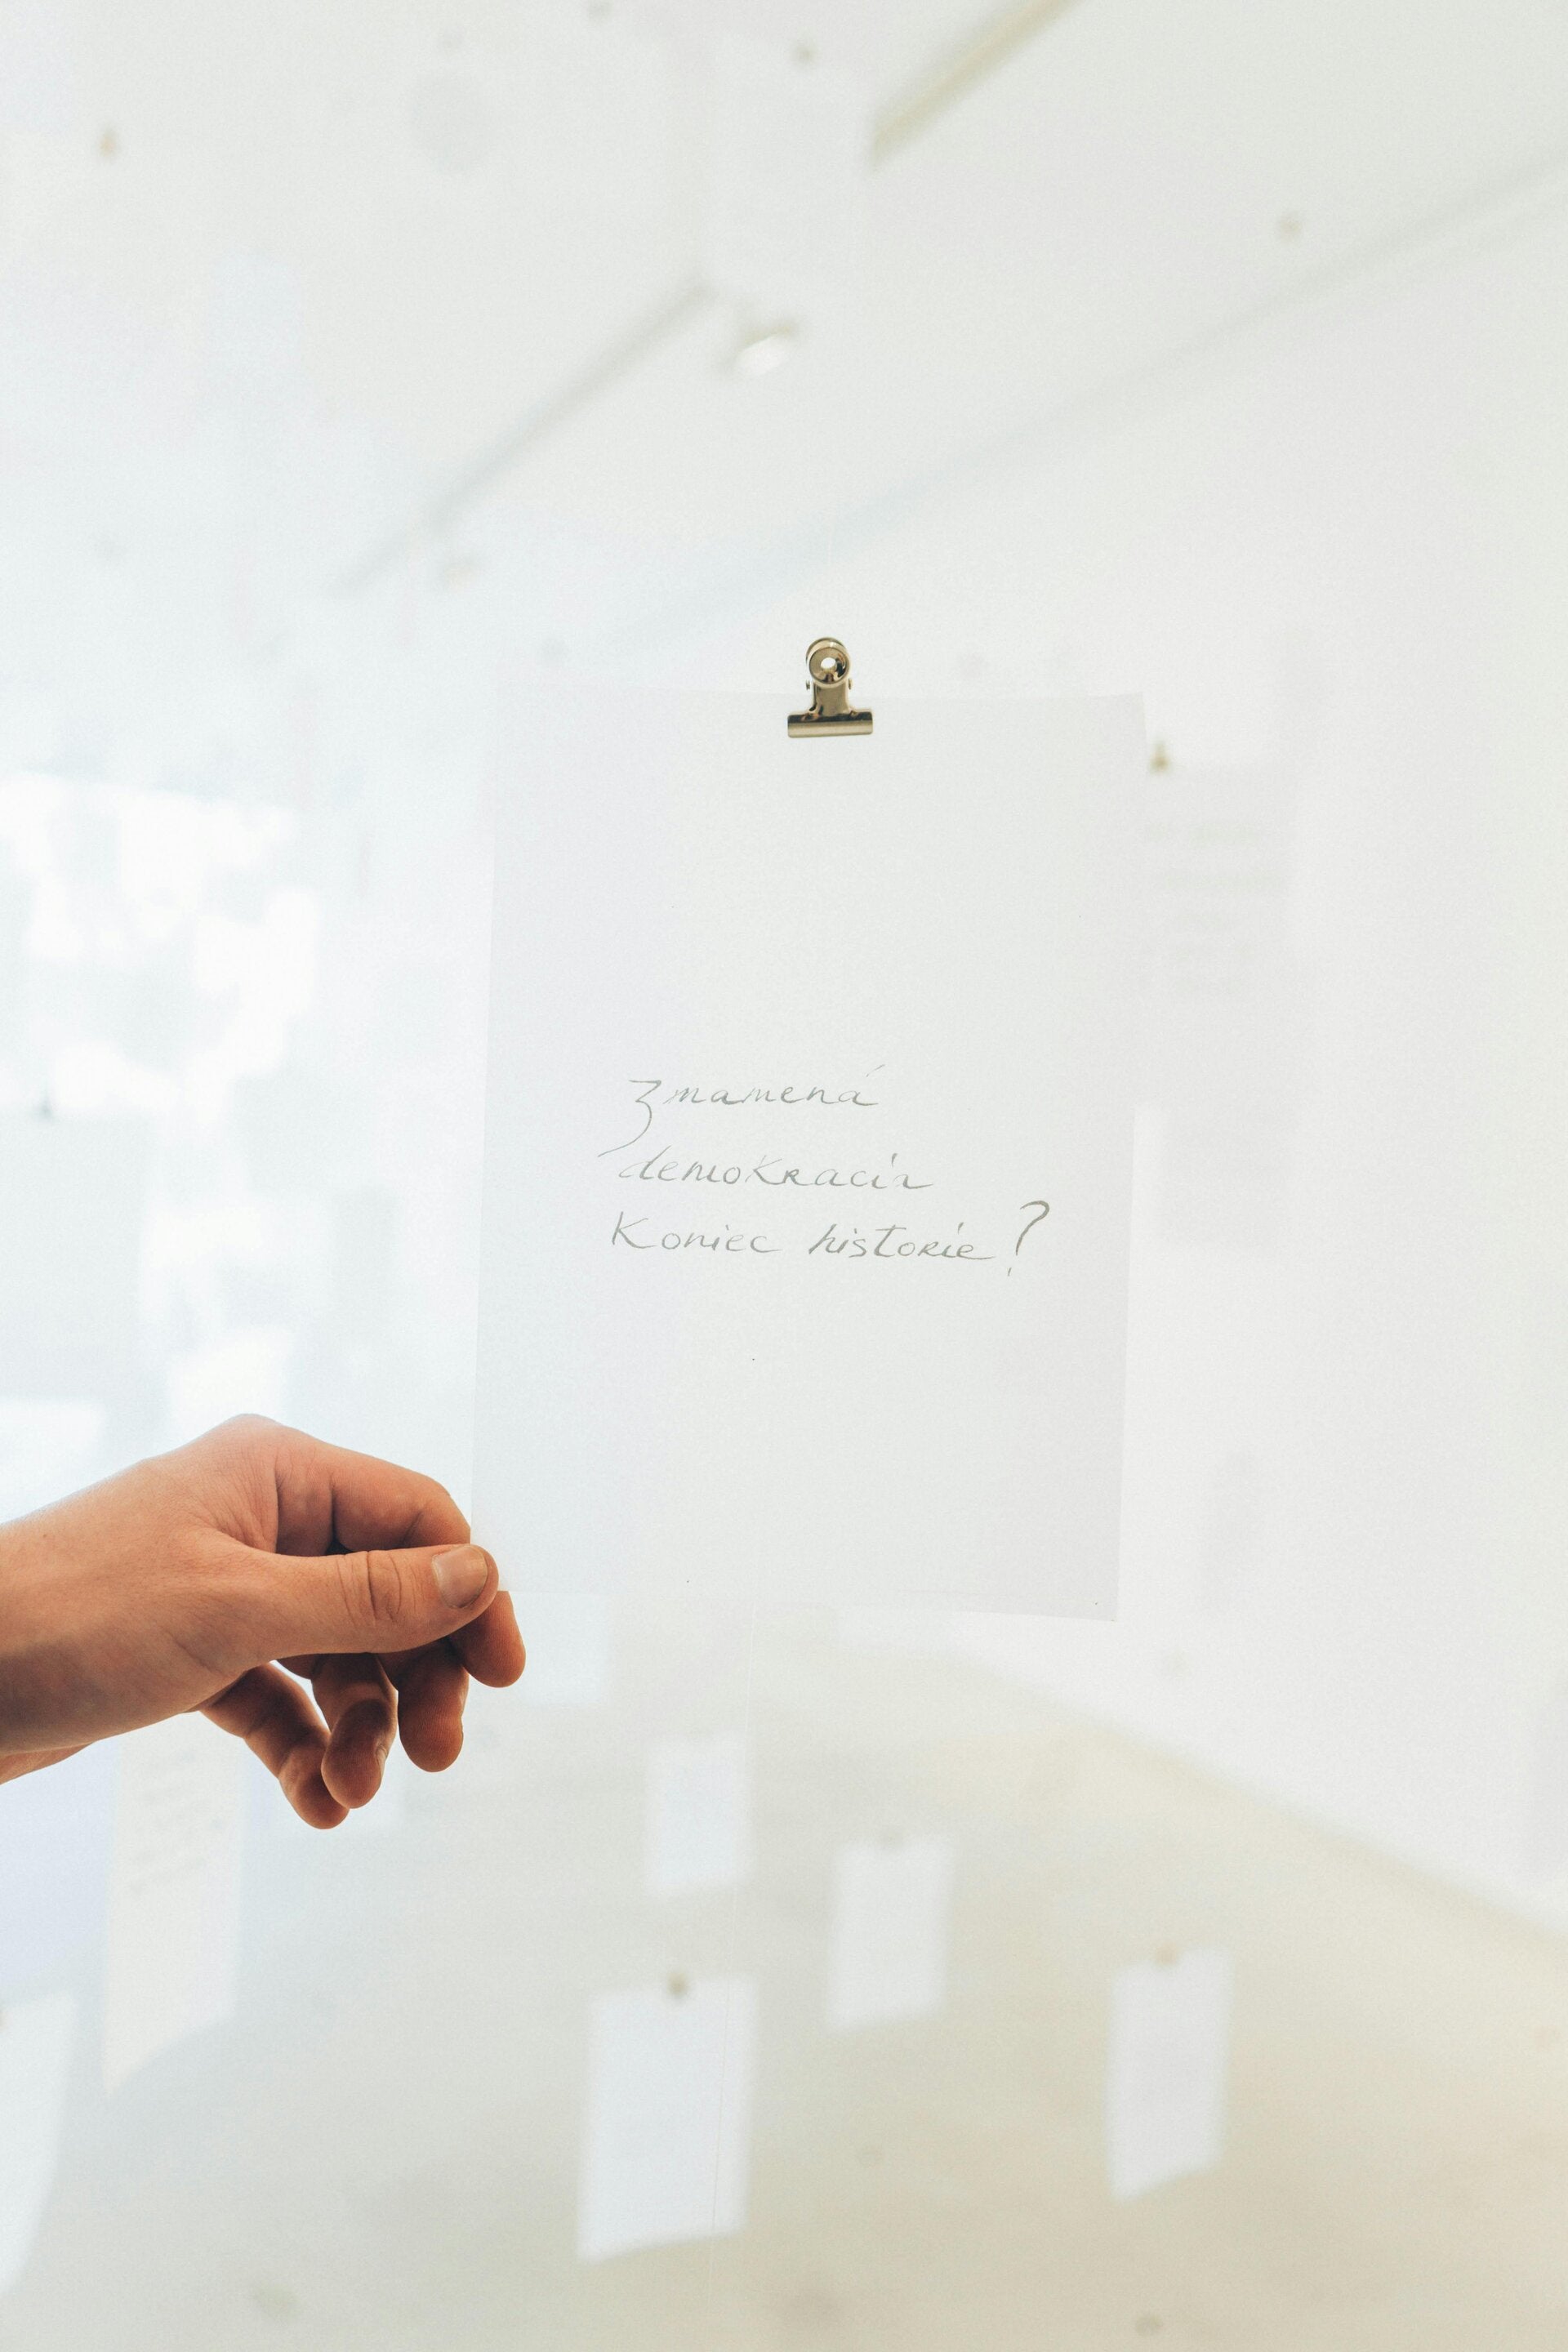 Zmamená
demokracia
Koniec historie?